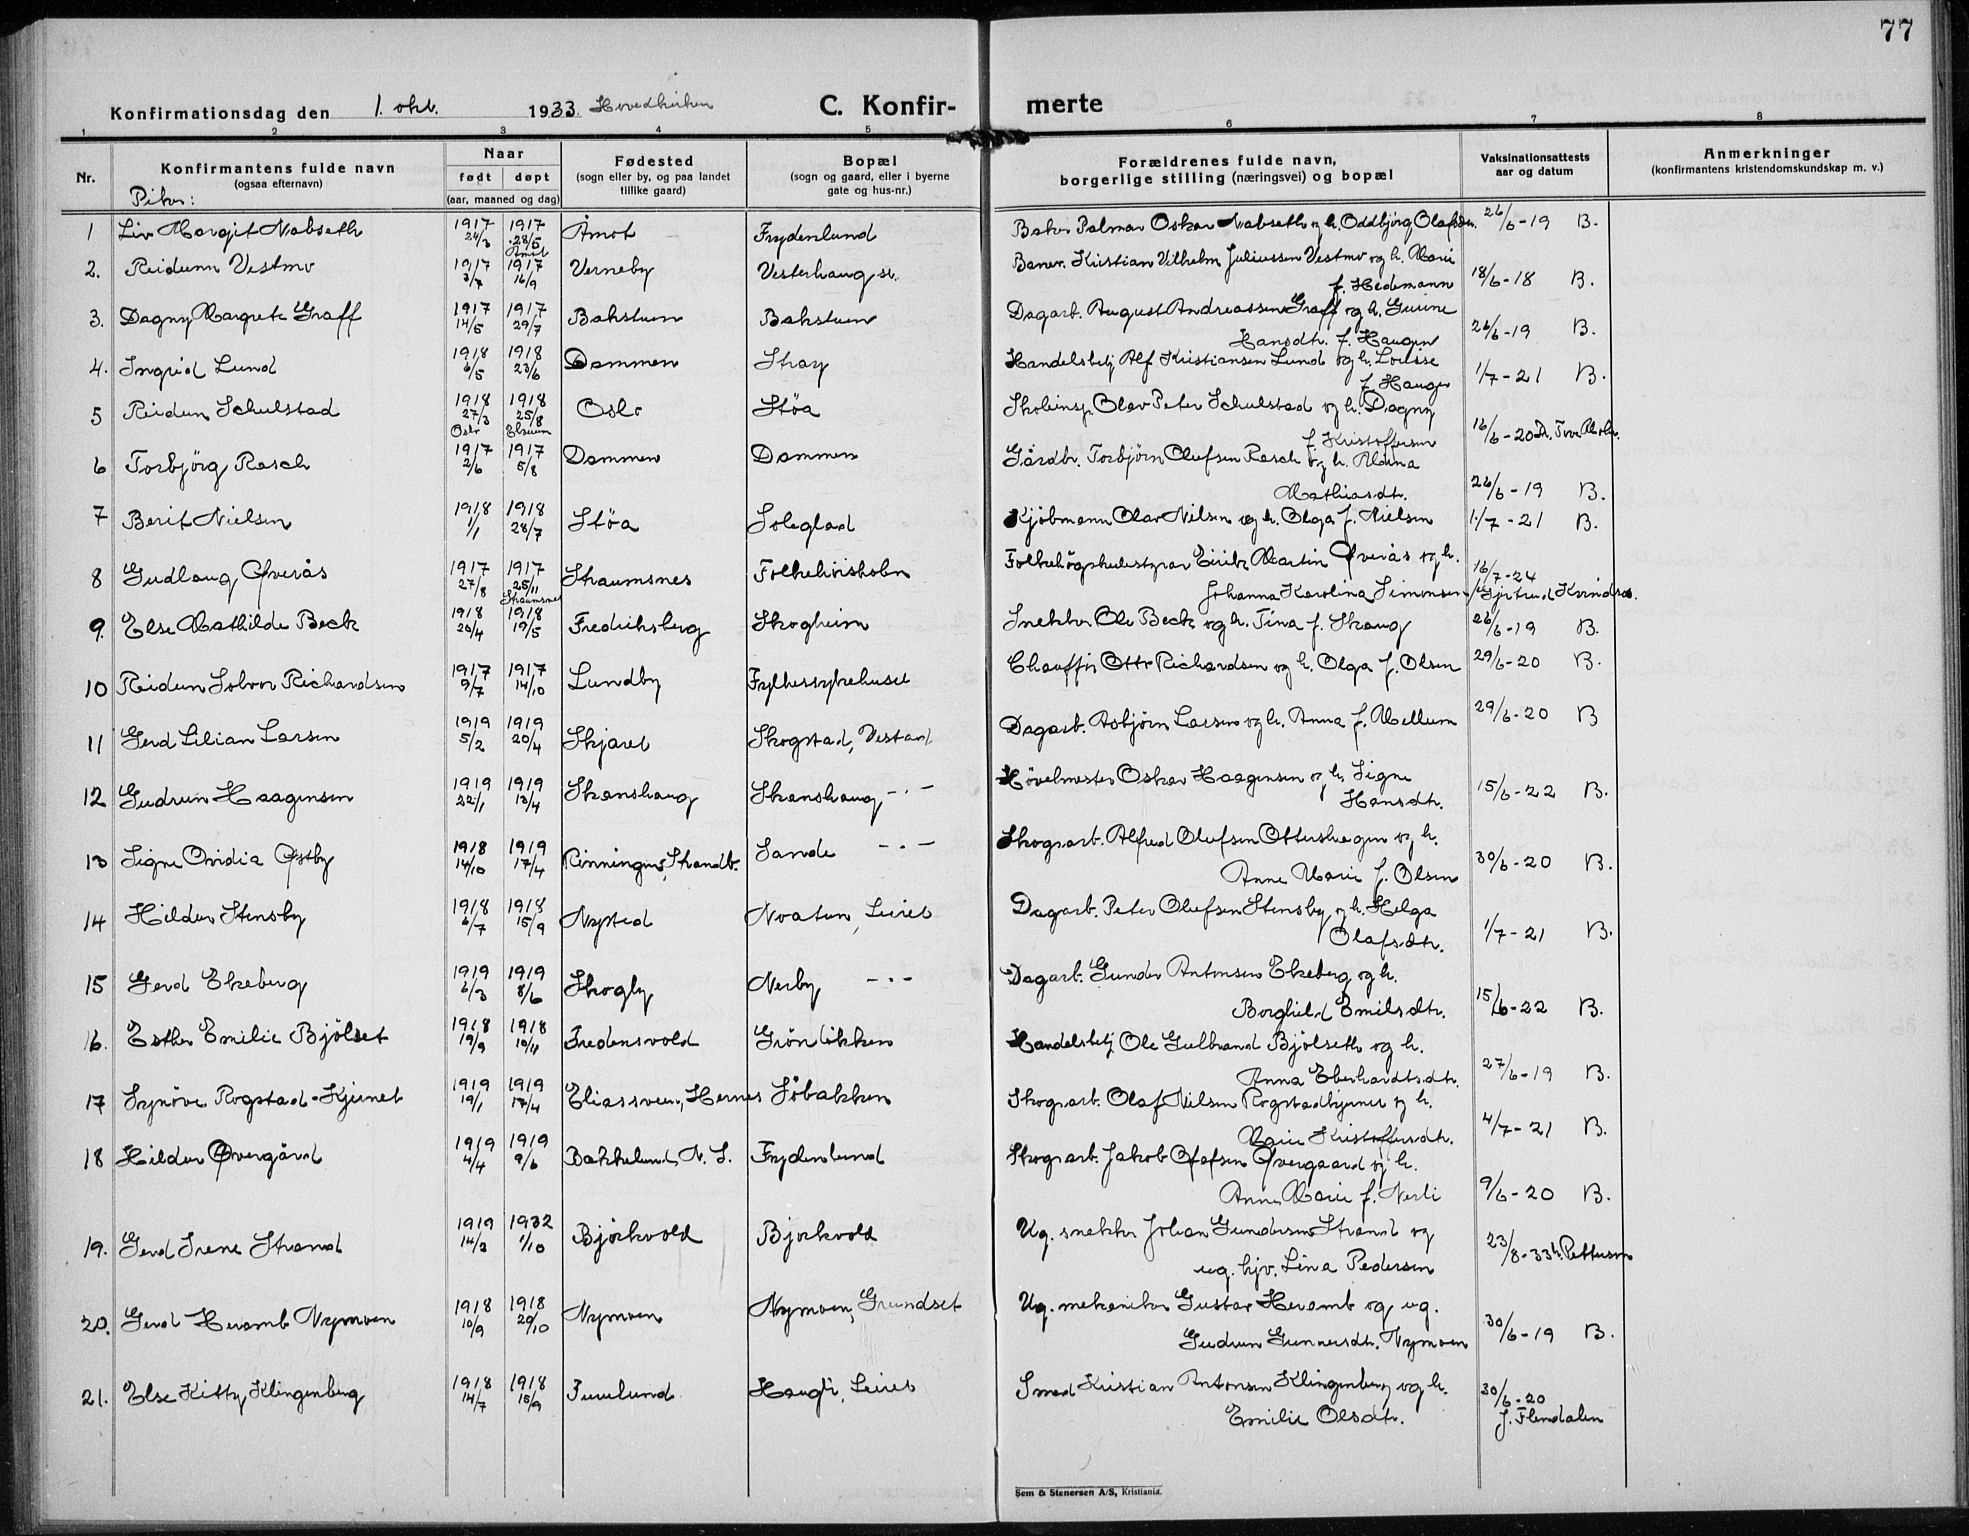 77
Konfirmationsdag den 1. okt. 1933. Hovedkirken C. Konfir- merte
1 2 3 4 5 6 7 8
Nr. Konfirmantens fulde navn (ogsaa efternavn) Naar født døpt (aar, maaned og dag) Fødested (sogn eller by, og paa landet tillike gaard) Bopæl (sogn og gaard, eller i byerne gate og hus-nr.) Forældrenes fulde navn, borgerlige stilling (næringsvei) og bopæl Vaksinationsattests aar og datum Anmerkninger (konfirmantens kristendomskundskap m. v.)
Piker:
1 Liv Margit Nabseth 1917 24/3 1917 28/5 Åmot Åmot Frydenlund Baker Palmar Oskar Nabseth og h. Oddbjörg Olafsdtr. 26/6-19 B.
2. Reidunn Vestmo 1917 3/7 1917 16/9 Verneby Vesterhaug Banev. Kristian Vilhelm Juliussen Vestmo og h. Marie
f. Hedemann 18/6-18 B.
3. Dagny Margrete Graff 1917 14/5 1917 29/7 Bakstuen Bakstuen Dagarb. August Andreassen Graff og h. Gurine
Hansdtr. f. Haugen 26/6-19 B.
4. Ingrid Lund 1918 6/5 1918 23/6 Dammen Stray Handelsbetj. Alf Kristiansen Lund og h. Louise
f. Hauger 1/7-21 B.
5 Reidun Schulstad 1918 27/3 Oslo 1918 25/8 Elverum Oslo Støa Skoleinsp. Olav Peter Schulstad og h. Dagny
f. Kristoffersen 16/6-20 Dr. Tove Mohr.
6 Torbjörg Rasch 1917 2/6 1917 5/8 Dammen Dammen Gårdbr. Torbjörn Olufsen Rasch og h.
Mathiasdtr. 26/6-19 B.
7 Berit Nielsen 1918 1/1 1918 28/7 Støa Soleglad Kjöbmann Olav Nilsen og h. Olga f. Nielsen 1/7-21 B.
8 Gudlaug Øverås 1917 27/8 1917 25/11 Straumsnes Straumsnes Folkehöiskolen Folkehögskulestyrar Eirik Martin Øverås og h.
Johanna Karolina Simonsen 16/7-24 Gjertrud
9. Else Mathilde Beck 1918 20/4 1918 19/5 Fredriksberg Skogheim Snekker Ole Beck og h. Tina f. Skaug 26/6-19 B.
10 Reidun Solvor Richardsen 1917 9/7 1917 14/10 Lundby Fylkessykehuset Chauffør Otto Richardsen og h. Olga f. Olsen 29/6-20 B.
11 Gerd Lilian Larsen 1919 5/2 1919 20/4 Skjaret Skogstad, Vestad Dagarb. Asbjørn Larsen og h. Anna f. Mellum 29/6-20 B
12 Gudrun Haagensen 1919 22/1 1919 13/4 Skanshaug Skanshaug -"- Hövelmester Oskar Haagensen og h. Signe
Hansdtr. 15/6-22 B.
13 Signe Ovidia Østby 1918 14/10 1919 17/4 Rinningmo, Strandb. Sande -"- Skogsarb. Alfred Olufsen Ottershagen og h.
Anne Marie f. Olsen 30/6-20 B.
14 Hildur Stensby 1918 6/7 1918 15/9 Nysted Noatun, Leiret Dagarb. Peter Olufsen Stensby og h. Helga
Olafsdtr. 1/7-21 B.
15 Gerd Ekeberg 1919 6/3 1919 8/6 Skogly Nerby -"- Dagarb. Gunder Antonsen Ekeberg og h.
Borghild Emilsdtr. 15/6-22 B.
16. Esther Emilie Bjölset 1918 19/9 1918 10/11 Fredensvold Gröndokken Handelsbetj. Ole Gulbrand Bjölseth og h.
Anna Eberhardtsdtr. 27/6-19 B.
17 Synöve Rogstad-Kjernet 1919 19/1 1919 17/4 Eliassveen, Hernes Söbakken Skogsarb. Olaf Nilsen Rogstadkjernet og h.
Marie Kristoffersdtr. 4/7-21 B.
18 Hildur Øvergård 1919 4/4 1919 9/6 Bakkelund, N. S. Frydenlund Skogsarb. Jakob Olafsen Øvergaard og h.
Anne Marie f. Nerli 9/6-20 B.
19. Gerd Irene Strand 1919 14/2 1932 1/10 Björkvold Bjorkvold Ug. snekker Johan Gundersen Strand og
ug. hjv. Lina Pedersen 23/8-33 h. Pettersen
20. Gerd Heramb Nymoen 1918 10/9 1918 20/10 Nymoen Nymoen, Grundset Ug. mekaniker Gustav Heramb og ug.
Gudrun Gunnersdtr. Nymoen 30/6-19 B.
21. Else Kitty Klingenberg 1918 14/7 1918 15/9 Furulund Haugli, Leiret Smed Kristian Antonsen Klingenberg og h.
Emilie Olsdtr. 30/6-20 J. Flendalen
Sem & Stenersen A/S, Kristiania.